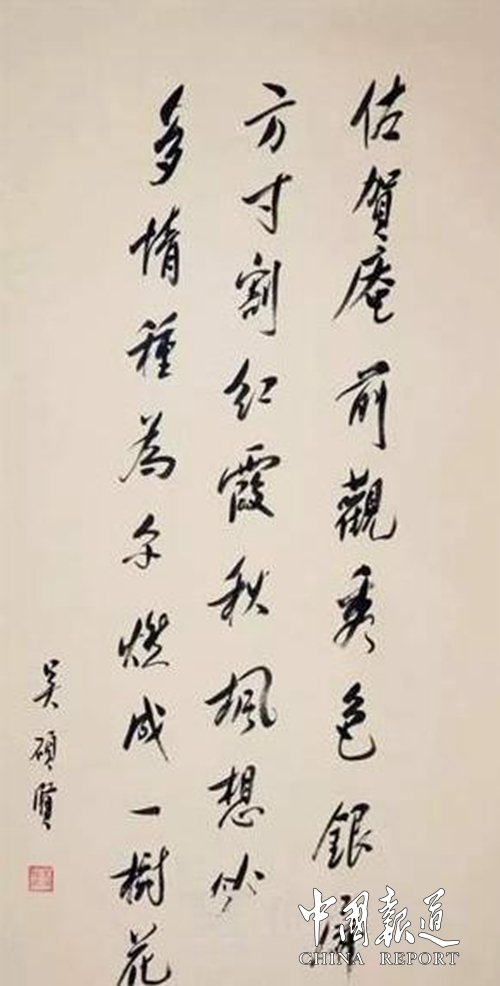 估賀庵前觀秀色銀屏
方寸割紅霞秋楓想必
多情種為尔燃成一樹花
吳碩賢
中國報道
CHINA REPORT